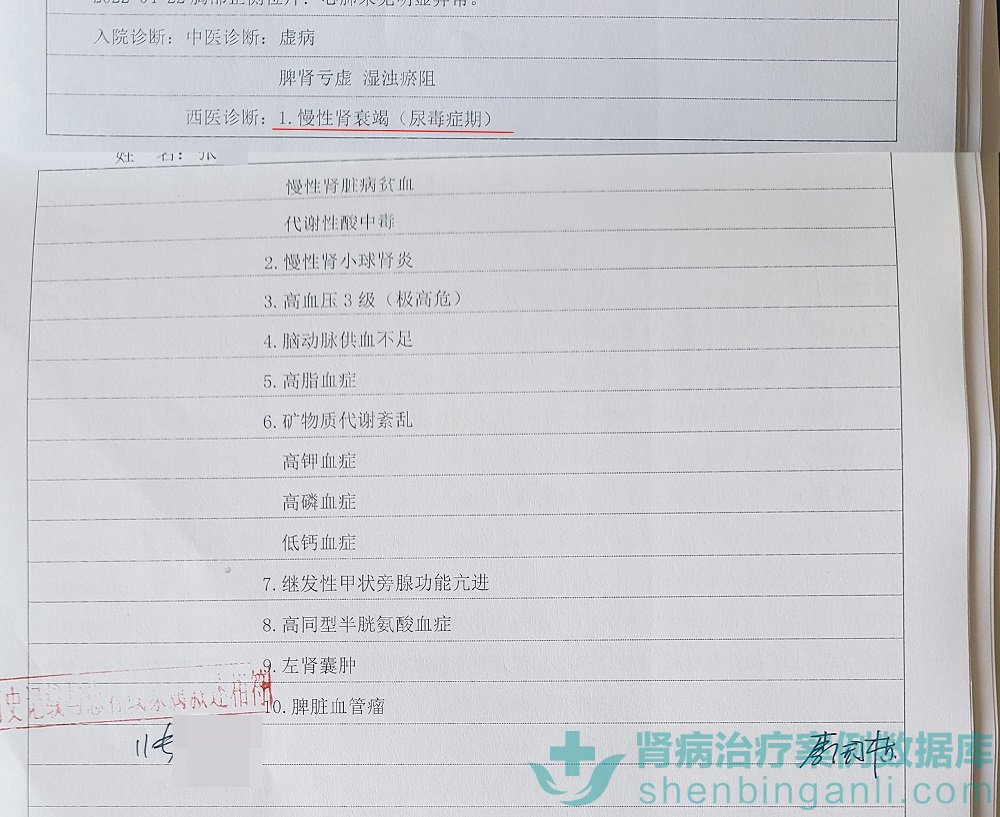 2022-04-22胸部正侧位片：心肺未见明显异常。
入院诊断：中医诊断：虚病
脾肾亏虚 湿浊瘀阻
西医诊断：1.慢性肾衰竭（尿毒症期）
姓 名：张
慢性肾脏病贫血
代谢性酸中毒
2.慢性肾小球肾炎
3.高血压3级（极高危）
4.脑动脉供血不足
5.高脂血症
6.矿物质代谢紊乱
高钾血症
高磷血症
低钙血症
7.继发性甲状旁腺功能亢进
8.高同型半胱氨酸血症
9.左肾囊肿
10.脾脏血管瘤
相符
肾病治疗案例数据库
shenbinganli.com